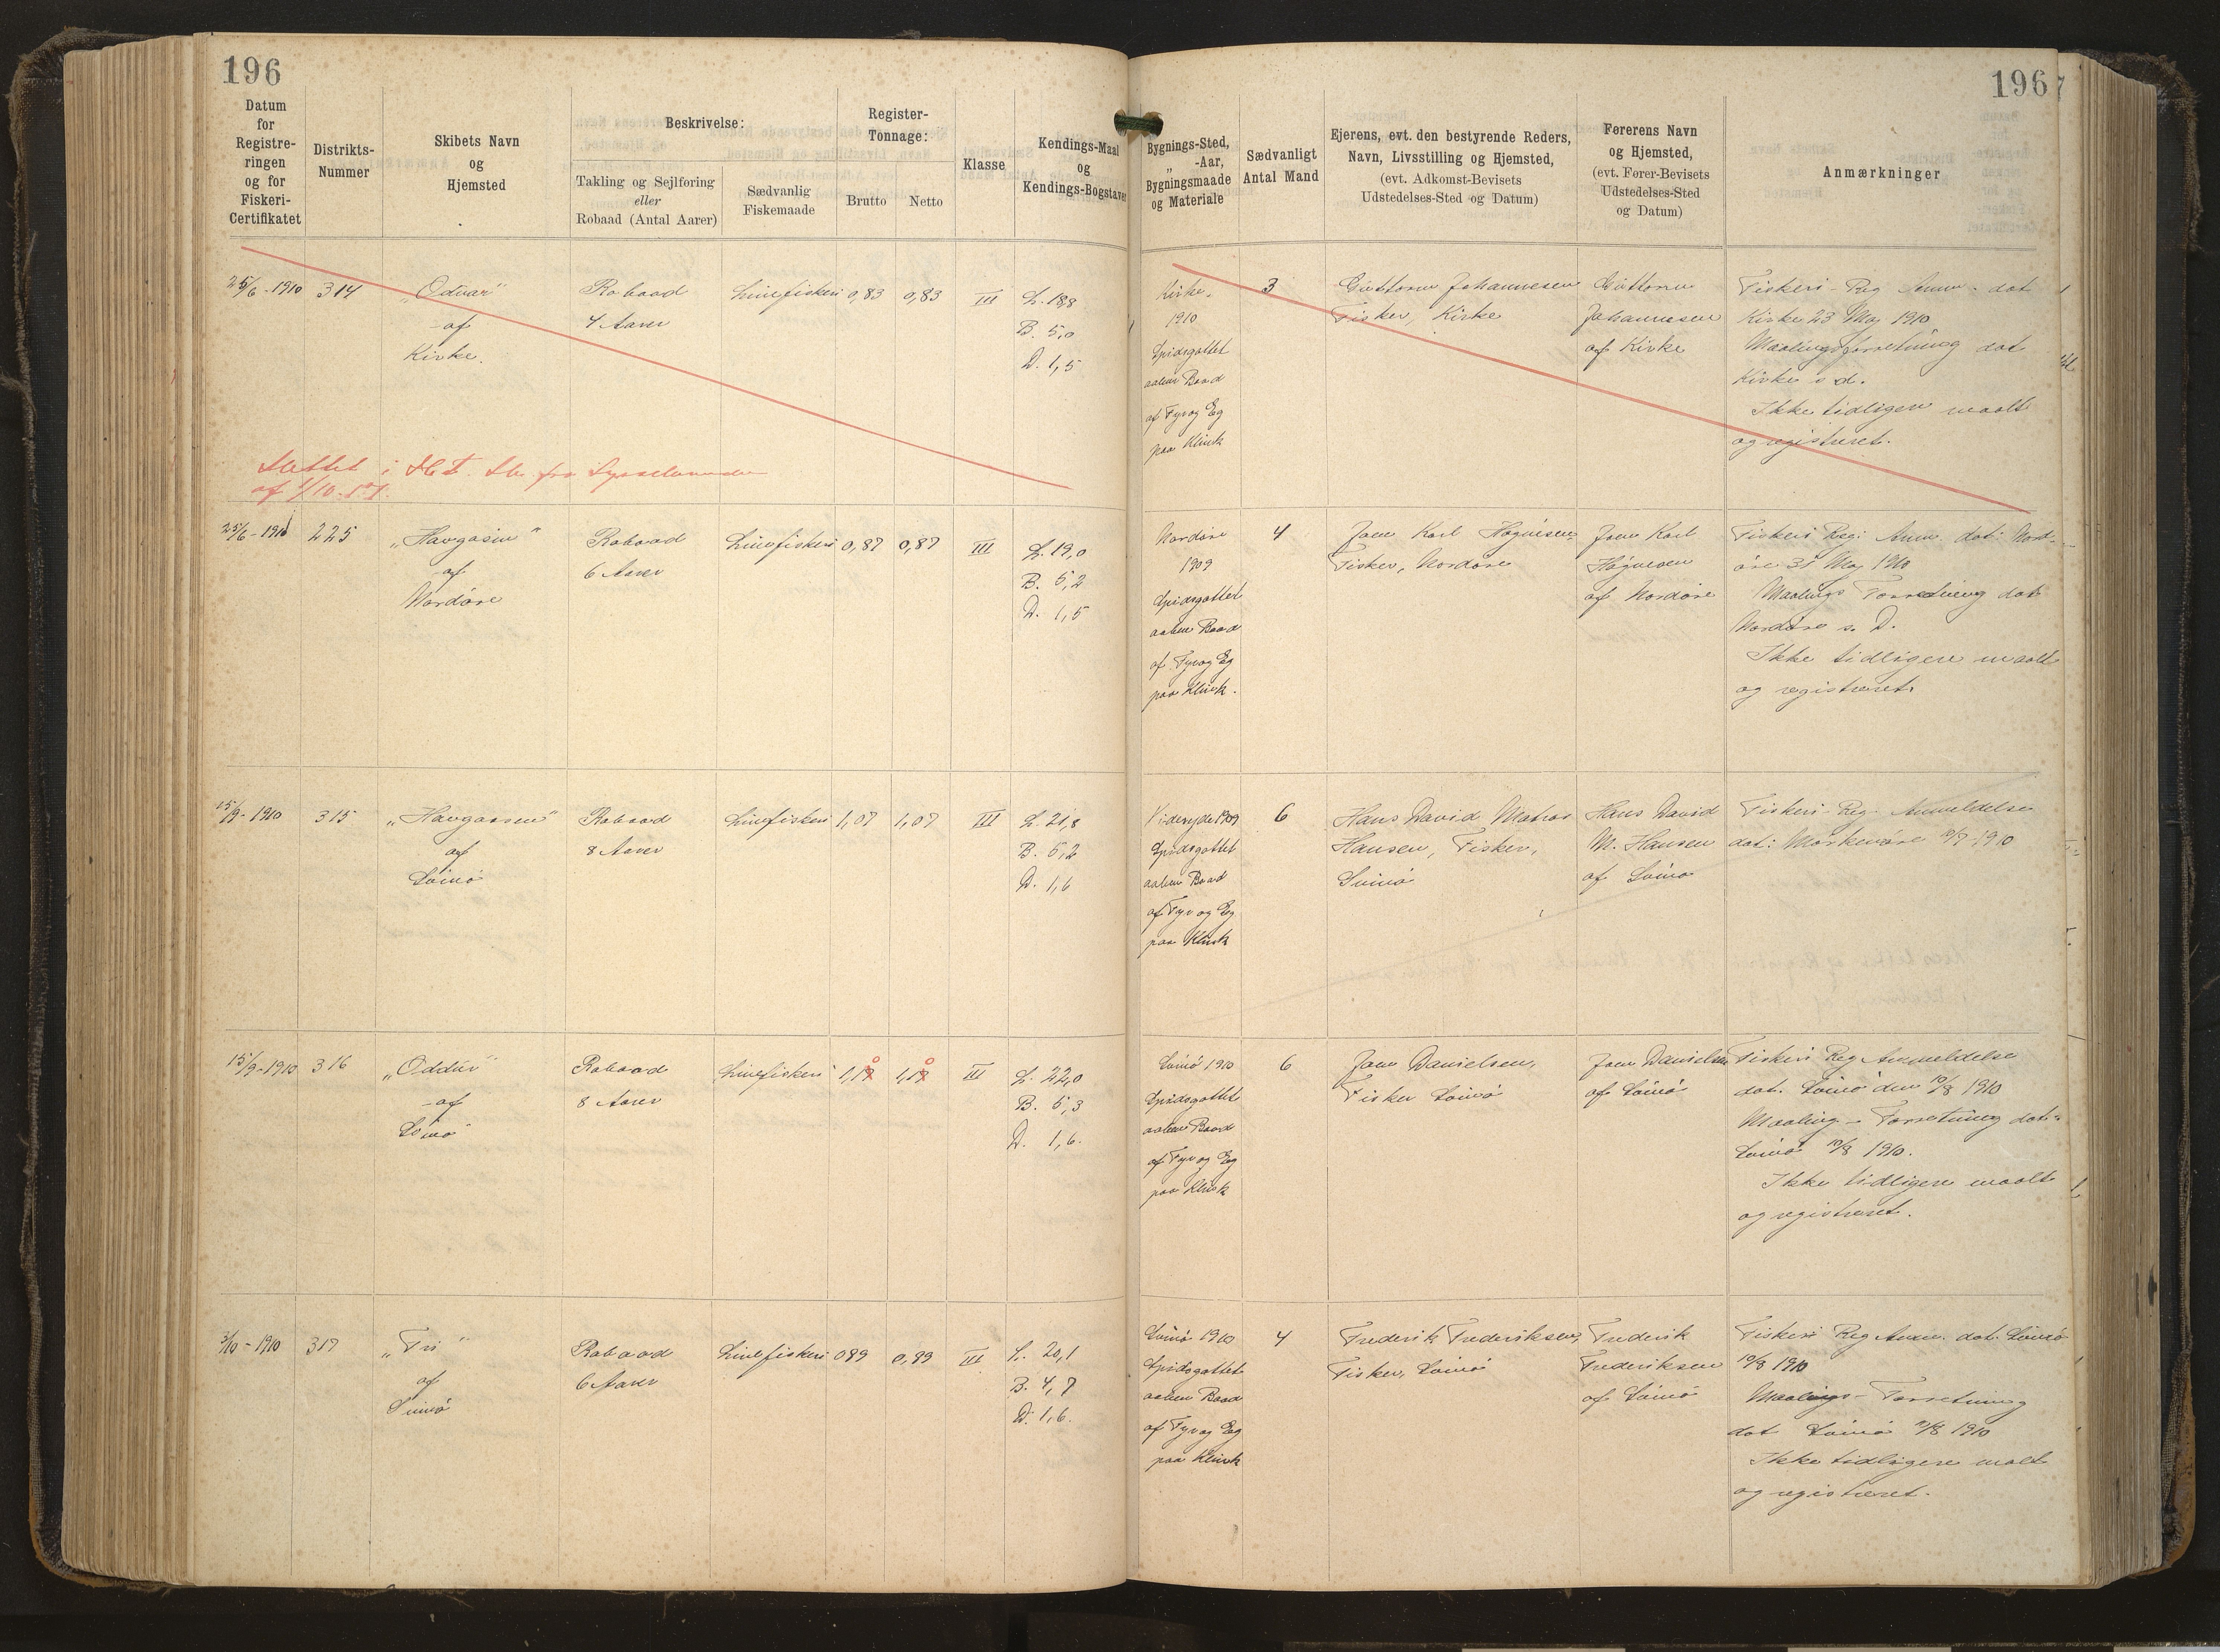 196
196
Datum
for
Registre-
ringen
og for
Fiskeri-
Certifikatet
Distrikts-
Nummer
Skibets Navn
og
Hjemsted
Beskrivelse:
Takling og Sejlføring
eller
Robaad (Antal Aarer)
Sædvanlig
Fiskemaade
Register-
Tonnage:
Brutto
Netto
Klasse
Kendings-Maal
og
Kendings-Bogstaver
Bygnings-Sted,
„ -Aar,
Bygningsmaade
og Materiale
Sædvanligt
Antal Mand
Ejerens, evt. den bestyrende Reders,
Navn, Livsstilling og Hjemsted,
(evt. Adkomst-Bevisets
Udstedelses-Sted og Datum)
Førerens Navn
og Hjemsted,
(evt. Fører-Bevisets
Udstedelses-Sted
og Datum)
Anmærkninger
25/6 - 1910
314
„Odvar"
af
Kirke.
Robaad
4 Aarer
Linefiskeri
0,83
0,83
III
L. 18,8
B. 5,0
D. 1,5
Kirke.
1910
Spidsgattet
aaben Baad
af Fyr og Eg
paa Klink
3
Guttorm Johannesen
Fisker, Kirke
Guttorm
Johannesen
af Kirke
Fiskeri-Reg Anm. dat
Kirke 23 Maj 1910
Maalingsforretning dat
Kirke s d.
Ikke tidligere maalt
og registreret.
Slettet i
af 1/10
fra Sysselmanden
25/6 - 1910
225
„Havgasin"
af
Nordøre
Robaad
6 Aarer
Linefiskeri
0,87
0,87
III
L. 19,0
B. 5,2
D. 1,5
Nordøre
1909
Spidsgattet
aaben Baad
af Fyr og Eg
paa Klink.
4
Joen Karl Høgnesen
Fisker, Nordøre
Joen Karl
Høgnesen
af Nordøre
Fiskeri Reg: Anm. dat: Nord-
øre 31 Maj 1910
Maalings Forretning dat
Nordøre s. D.
Ikke tidligere maalt
og registreret.
15/9 - 1910
315
„Havgaasen"
af
Svinø
Robaad
8 Aarer
Linefiskeri
1,07
1,07
III
L. 21,8
B. 5,2
D. 1,6
Videreyde 1909
Spidsgattet
aaben Baad
af Fyr og Eg
paa Klink
6
Hans David Matras
Hansen, Fisker,
Svinø
Hans David
M. Hansen
af Svinø
Fiskeri-Reg. Anmeldelse
dat: Morkenøre /7 1910
15/9 - 1910
316
„Oddur"
af
Svinø
Robaad
8 Aarer
Linefiskeri
1,17
1,17
III
L. 22,0
B. 5,3
D. 1,6.
Svinø 1910
Spidsgattet
aaben Baad
af Fyr og Eg
paa Klink
6
Joen Danielsen,
Fisker Svinø
Joen Danielsen
af Svinø
Fiskeri Reg Anmeldelse
dat. Svinø den 10/8 1910
Maaling - Forretning dat.
Svinø 10/8 1910.
Ikke tidligere maalt
og registreret.
3/10 - 1910
317
„Fri"
af
Svinø
Robaad
6 Aarer
Linefiskeri
089
0,89
III
L. 20,1
B. 4,7
D. 1,6.
Svinø 1910
Spidsgattet
aaben Baad
af Fyr og Eg
paa Klink
4
Frederik Frederiksen,
Fisker, Svinø
Frederik
Frederiksen
af Svinø
Fiskeri Reg Anm. dat. Svinø
10/8 1910
Maalings - Forretning
dat Svinø /8 1910
Ikke tidligere malt
og registreret.